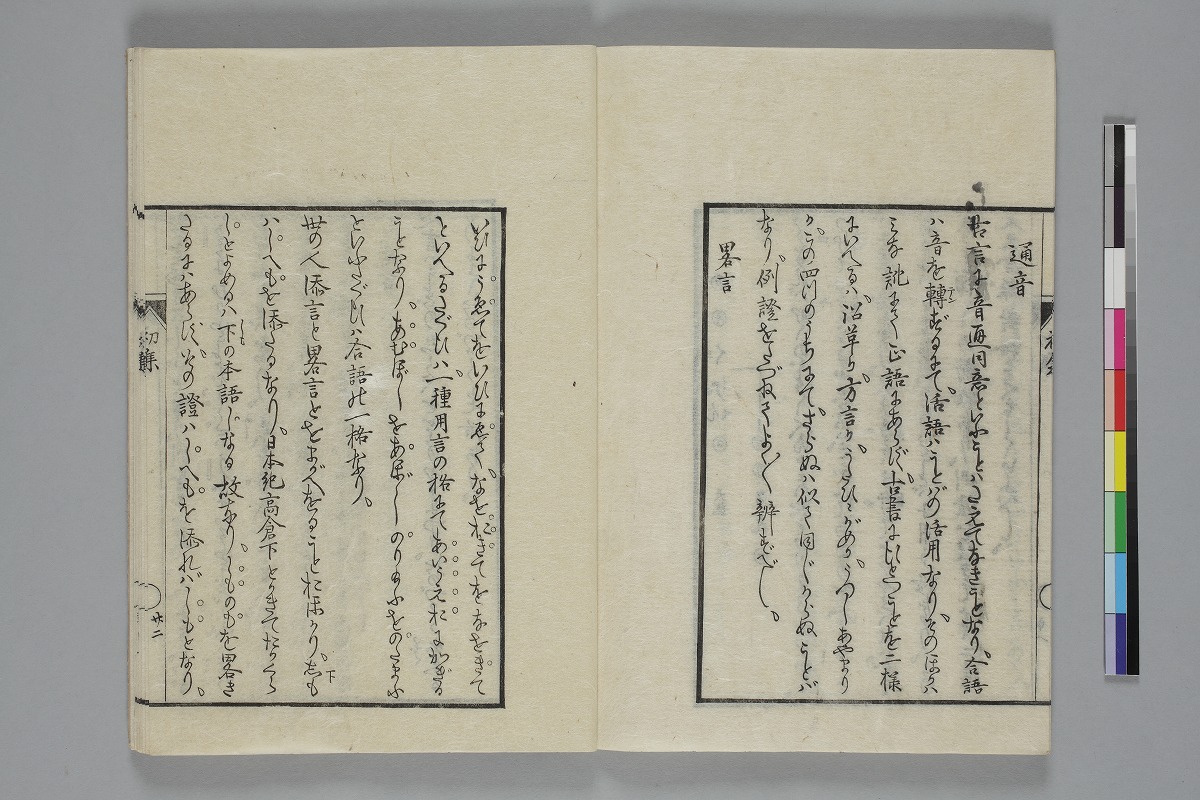 通音
古言に音通同意といふことはたえてなきことなり、合語
は音を轉ずるにて、活語はことばの活用なり、そのほかは
みな訛にて正語にあらず、古書にひとつことを二様
にいへるは、沿革か、方言か、うたひがめか、うつしあやまり
か、この四つのうちにて、さらぬは似て同じからぬことば
なり、例證をたづねてよく〳〵辨ずべし、
畧言
いひにうゑてをいひにゑて、なをおきてをなをきて
といへるたぐひは、一種用言の格にて、あいうえおにかぎる
ことなり、あむぼしをあぼし、のりものをのたまふ
といふたぐひは合語の一格なり、
世の人添言と畧言とをまがへをることおほかり、しも下
はしへもを添たるなり、日本紀高倉下とかきてたかくら
じとよめるは下の本語じなる故なり、しものもを畧き
たるにはあらず、その證はしへもを添ればしもとなり、
初集
廿二